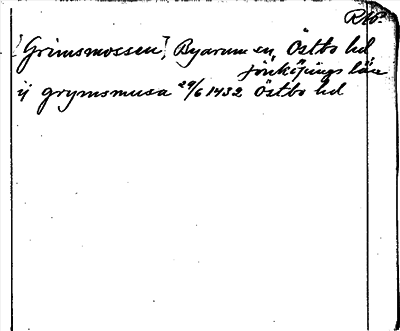 [Grimsmossen], Byarum sn, Östbo hd
Jönköpings län
ij grymsmusa 29/6 1432 Östbo hd